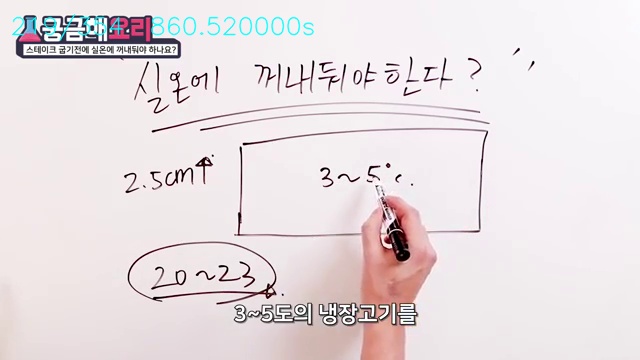 860.520000s
궁금해요리
스테이크 굽기전에 실온에 꺼내둬야 하나요?
실온에 꺼내둬야한다?
2.5cm↑
3~5°c.
20~23
3~5도의 냉장고기를